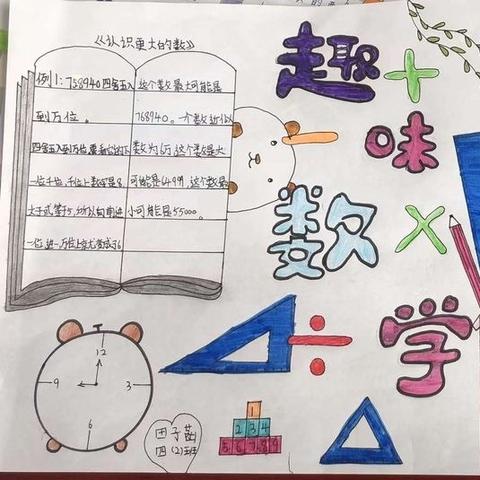 《认识更大的数》
例1：758940四舍五入
到万位。
四舍五入到万位要看它的下
一位千位，千位上数字是8，
大于或等于5，所以向前进
一位进一，万位上变成6
这个数最大可能是
768940。一个数近似
数为6万，这个数最大
可能是64999，这个数最
小可能是55000。
趣
味
数
学
+
×
÷
12
9
3
6
1
2 3 4
5 6 7 8 9
田子茹
四(2)班